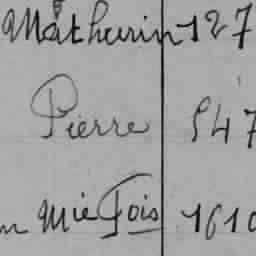 Mathurin 127
Pierre 547
Mie Fois 1610